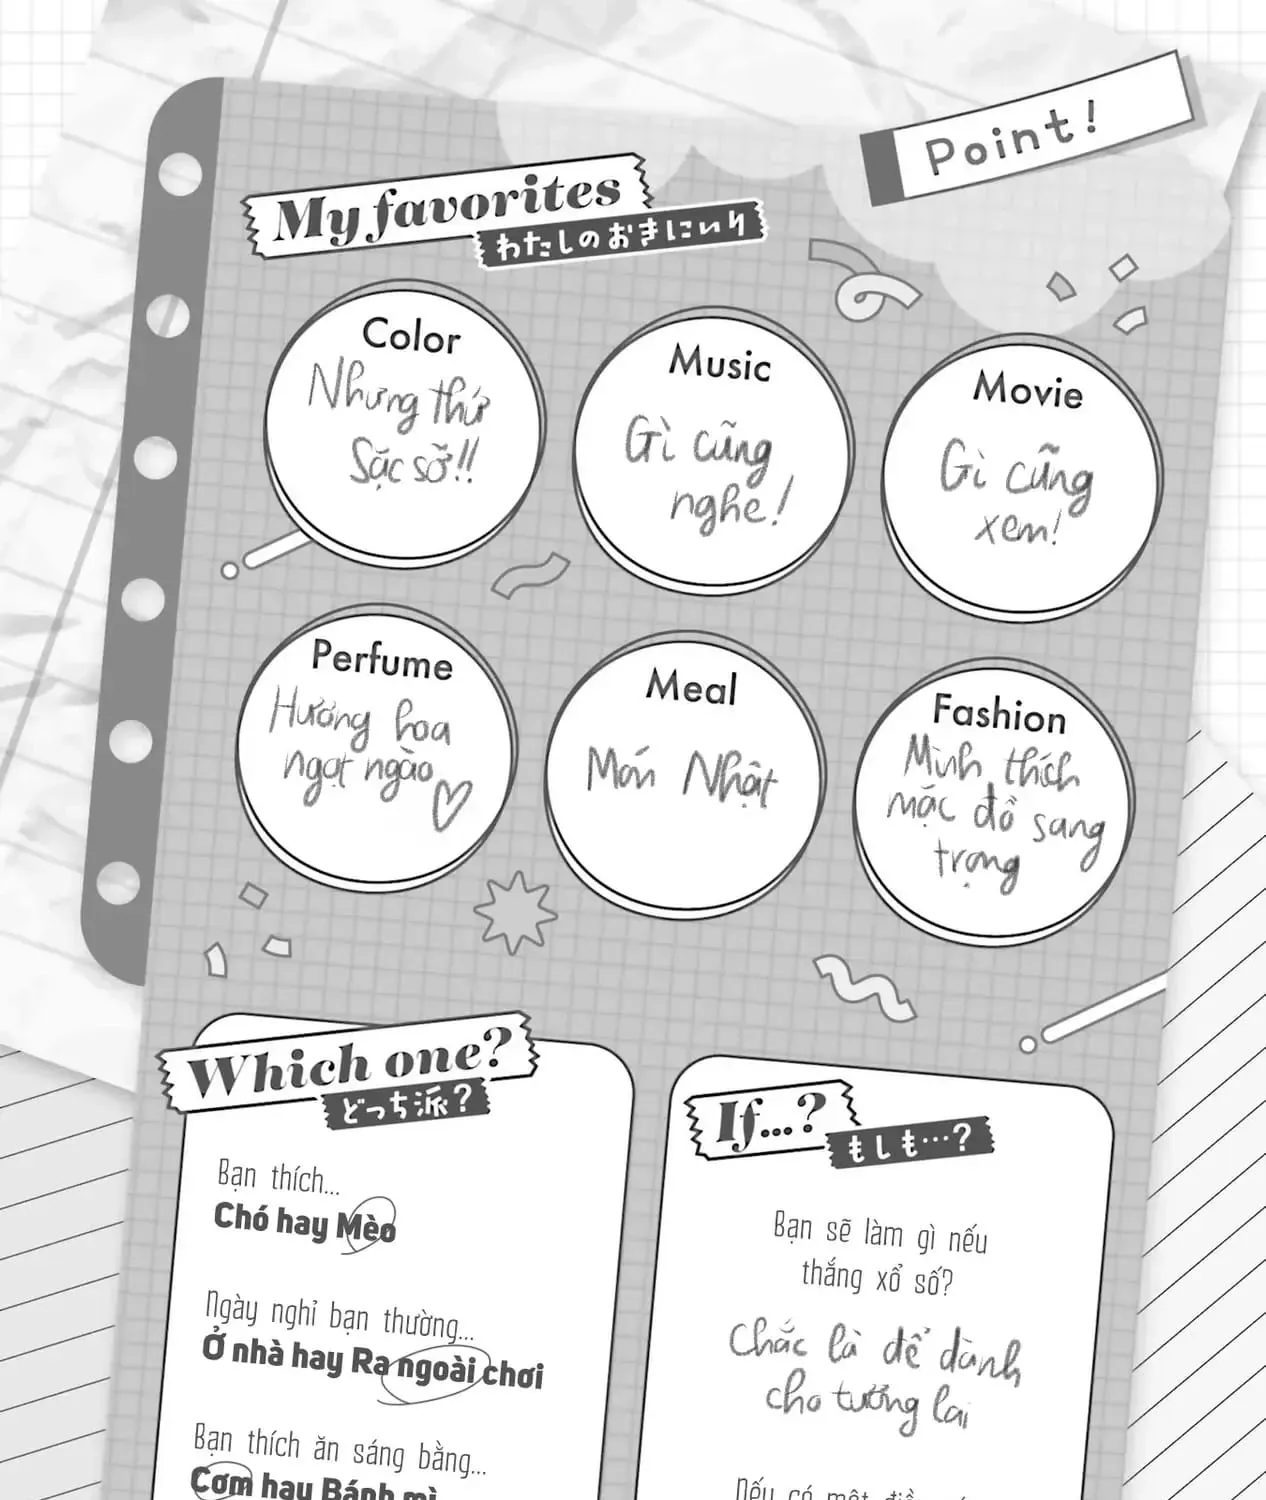 Point!
My favorites
わたしのおきにいり
Color
Nhưng thứ
Sặc sỡ!!
Music
Gì cũng
nghe!
Movie
Gì cũng
xem!
Perfume
Hương hoa
ngọt ngào
Meal
Món Nhật
Fashion
Mình thích
mặc đồ sang
trọng
Which one?
どっち派?
Bạn thích...
Chó hay Mèo
Ngày nghỉ bạn thường...
Ở nhà hay Ra ngoài chơi
Bạn thích ăn sáng bằng...
Cơm hay Bánh mì
If...?
もしも…?
Bạn sẽ làm gì nếu
thắng xổ số?
Chắc là để dành
cho tương lai
Nếu có một